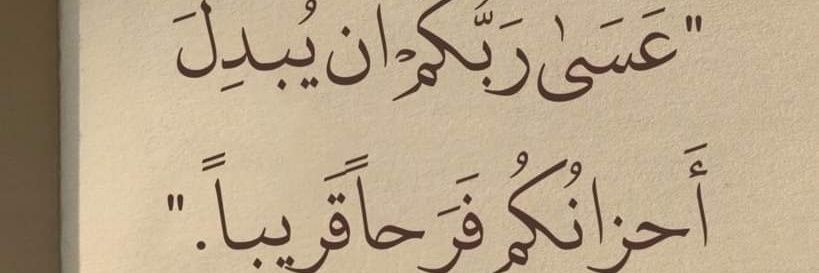 "عَسَىٰ رَبُّكُمْ ان يُبدِلَ
أَحزانُكُم فَرَحاً قَريباً."